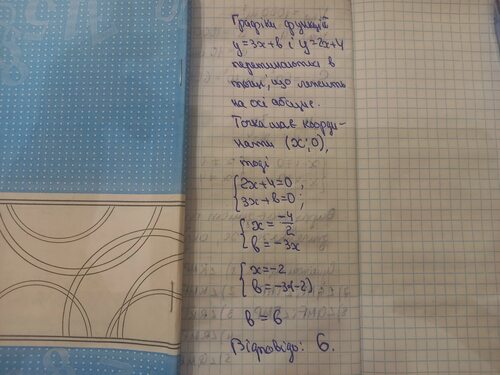 Графіки функцій
y=3x+b і y=2x+4
перетинаються в
точці, що лежить
на осі абсцис.
Точка має коорди-
нати (x;0),
тоді
{2x+4=0;
3x+b=0;
{x=-4/2
b=-3x
{x=-2
b=-3·(-2)
b=6
Відповідь: 6.